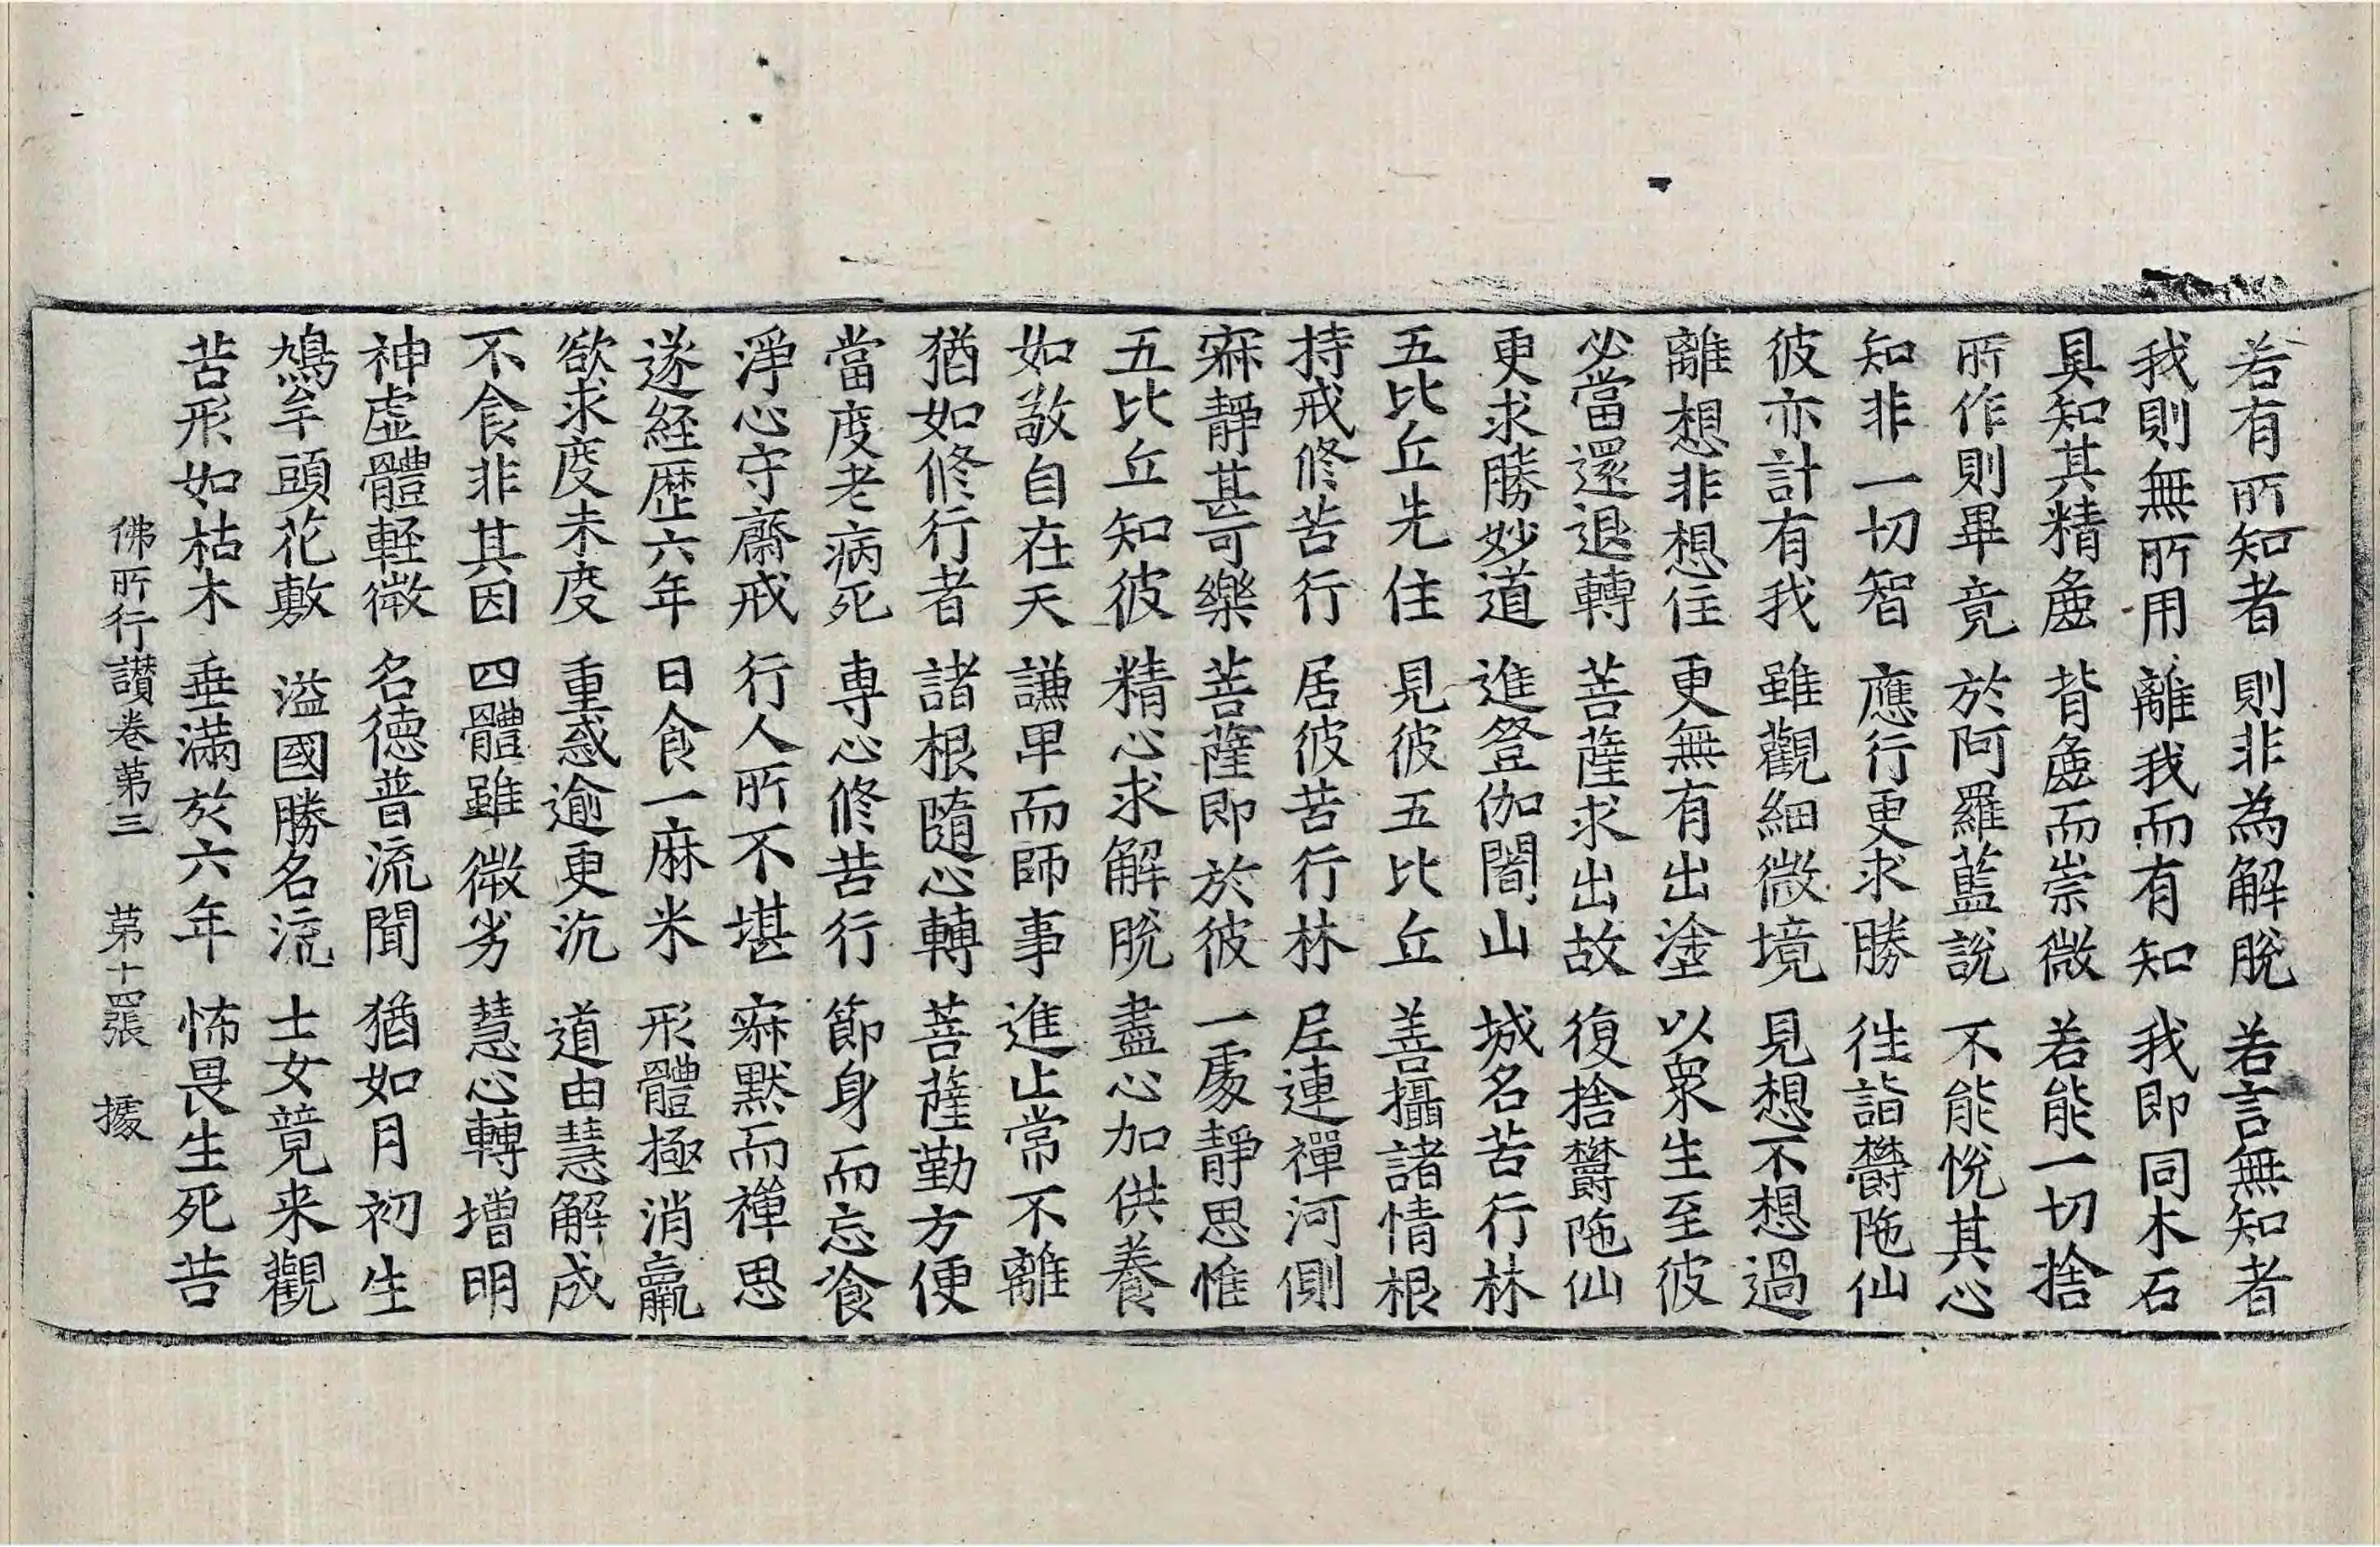 若有所知者 則非為解脫 若言無知者
我則無所用 離我而有知 我即同木石
具知其精麁 背麁而崇微 若能一切捨
所作則畢竟 於阿羅藍說 不能悅其心
知非一切智 應行更求勝 往詣欝陁仙
彼亦計有我 雖觀細微境 見想不想過
離想非想住 更無有出塗 以衆生至彼
必當還退轉 菩薩求出故 復捨欝陁仙
更求勝妙道 進登伽闍山 城名苦行林
五比丘先住 見彼五比丘 善攝諸情根
持戒修苦行 居彼苦行林 尼連禪河側
寂靜甚可樂 菩薩即於彼 一處靜思惟
五比丘知彼 精心求解脫 盡心加供養
如敬自在天 謙卑而師事 進止常不離
猶如修行者 諸根隨心轉 菩薩勤方便
當度老病死 專心修苦行 節身而忘飡
淨心守齋戒 行人所不堪 寂默而禪思
遂經歷六年 日食一麻米 形體極消羸
欲求度未度 重惑逾更沉 道由慧解成
不食非其因 四體雖微劣 慧心轉增明
神虛體軽微 名德普流聞 猶如月初生
鳩牟頭花敷 溢國勝名流 士女競来觀
苦形如枯木 垂滿於六年 怖畏生死苦
佛所行讚卷第三 第十四張 據